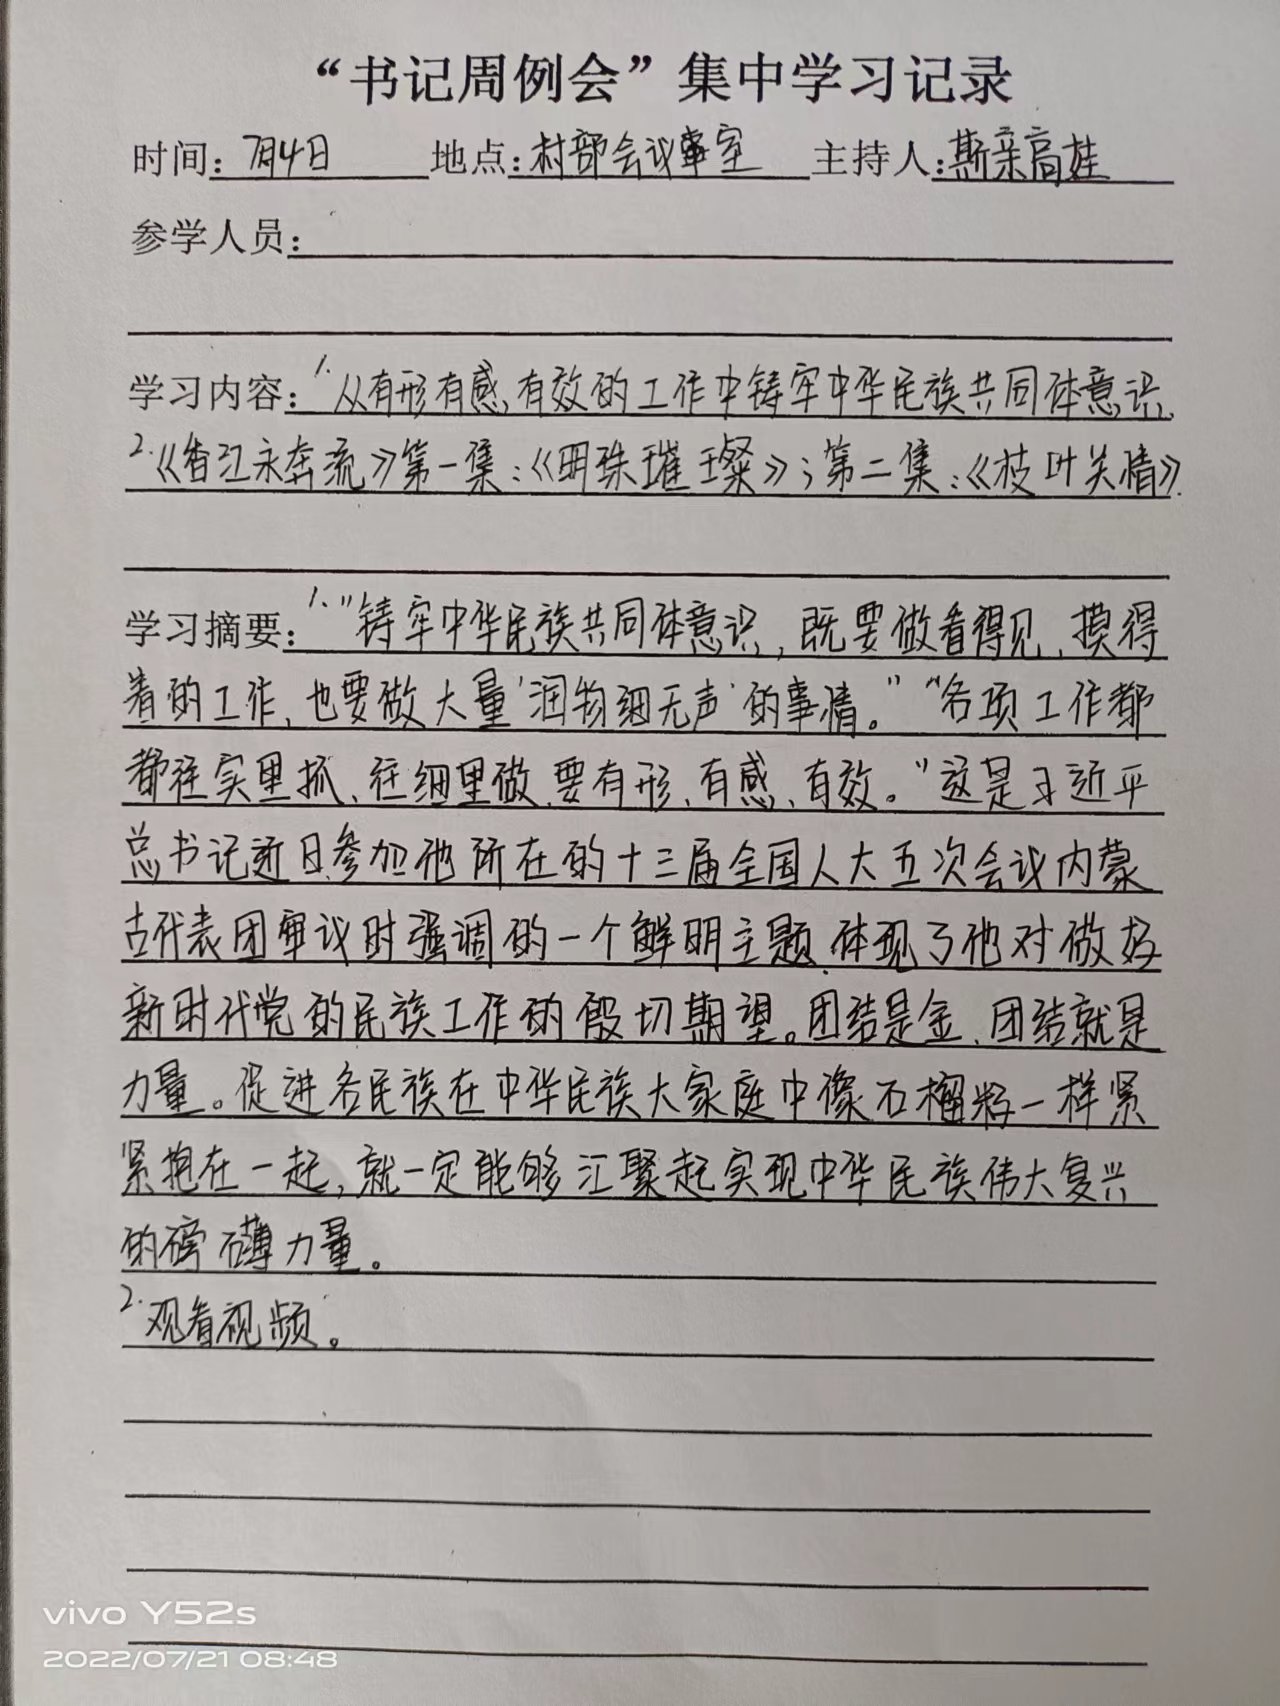 “书记周例会”集中学习记录
时间:7月4日 地点:村部会议事室 主持人:斯亲高娃
参学人员:
学习内容:1.从有形有感、有效的工作中铸牢中华民族共同体意识、
2.《香江永奔流》第一集:《明珠璀璨》;第二集:《枝叶关情》.
学习摘要:1.“铸牢中华民族共同体意识,既要做看得见、摸得
着的工作、也要做大量‘润物细无声’的事情。”“各项工作都
都往实里抓、往细里做、要有形、有感、有效。”这是习近平
总书记近日参加他所在的十三届全国人大五次会议内蒙
古代表团审议时强调的一个鲜明主题、体现了他对做好
新时代党的民族工作的殷切期望。团结是金、团结就是
力量。促进各民族在中华民族大家庭中像石榴籽一样紧
紧抱在一起,就一定能够汇聚起实现中华民族伟大复兴
的磅礴力量。
2.观看视频。
vivo Y52s
2022/07/21 08:48